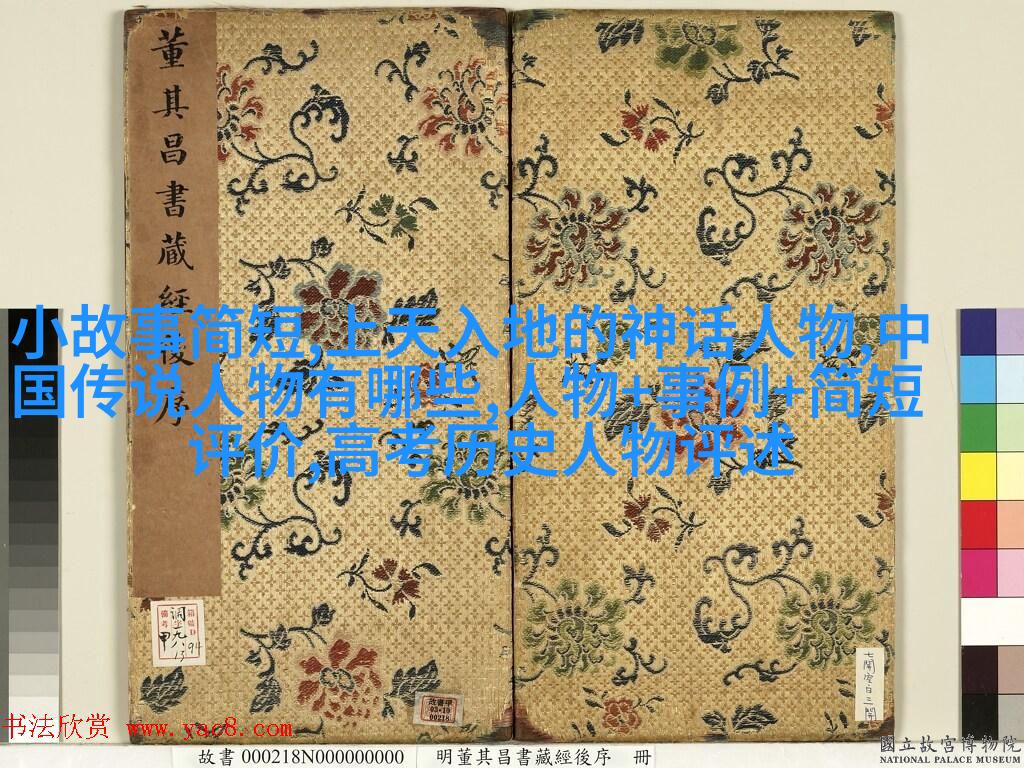 董其昌書藏經後序
小故事简短,上天入地的神话人物,中
国传说人物有哪些,人物+事例+简短
评价,高考历史人物评述
故書甲
03•10
00218
书法欣赏 www.yac8.com
故書 000218N000000000
明董其昌書藏經後序 冊
國立故宮博物院
NATIONAL PALACE MUSEUM